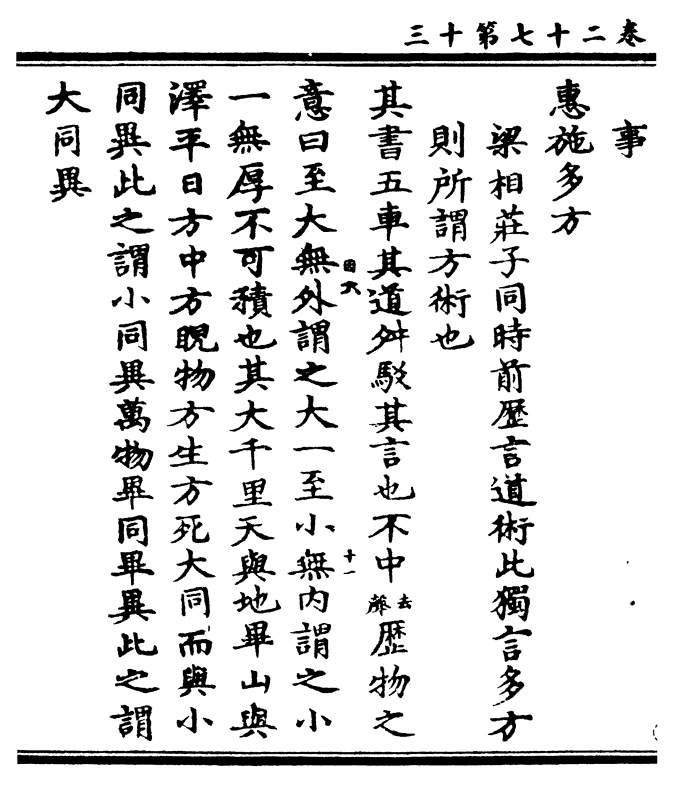 卷二十七第十三
事
惠施多方
梁相莊子同時前歷言道術此獨言多方
則所謂方術也
其書五車其道舛駁其言也不中去聲歷物之
十一
意曰至大無外謂之大一至小無內謂之小
一無厚不可積也其大千里天與地畢山與
澤平日方中方睨物方生方死大同而與小
同異此之謂小同異萬物畢同畢異此之謂
大同異